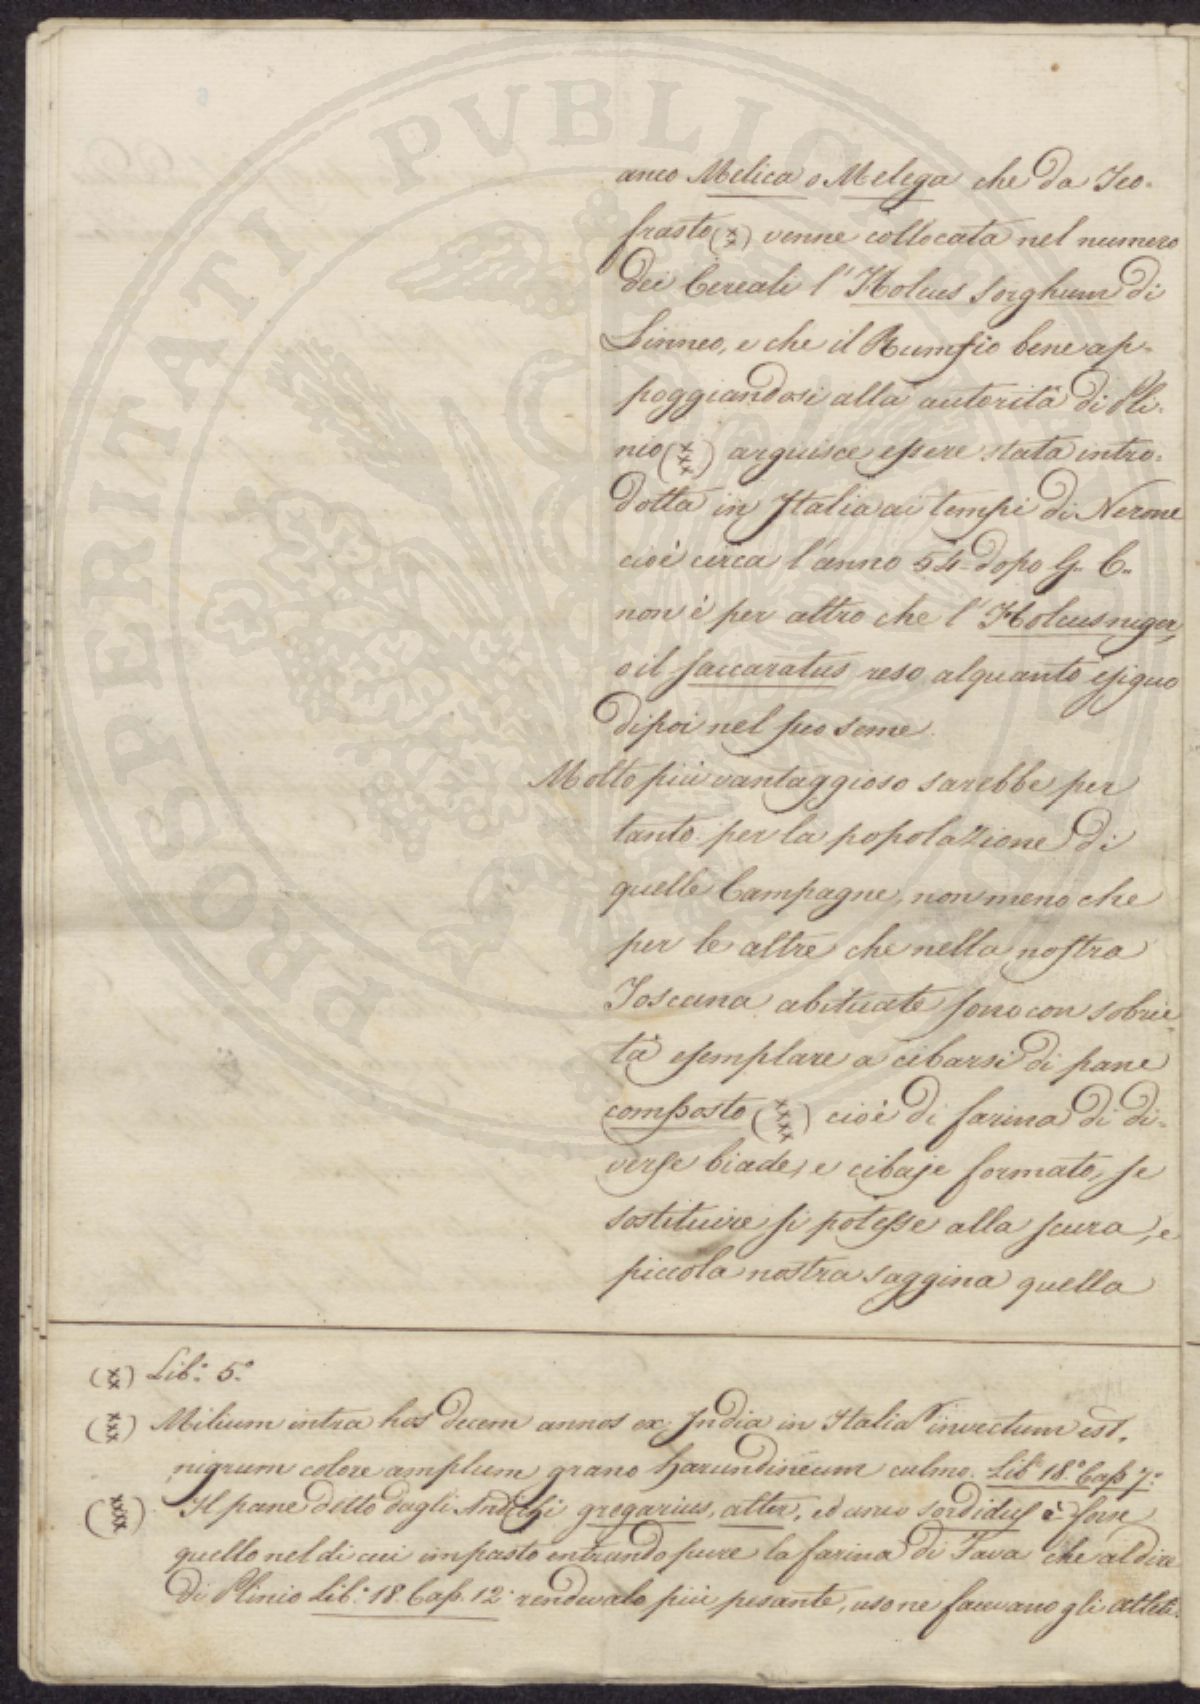 anco Melica o Melega che da Teo-
frasto (xx) venne collocata nel numero
dei Cereali l'Holcus sorghum di
Linneo, e che il Rumfio bene ap-
poggiandosi alla autorità di Pli-
nio (xxx) arguisce essere stata intro-
dotta in Italia ai tempi di Nerone
cioè circa l'anno 54 dopo G. C.
non è per altro che l'Holcus niger,
o il saccaratus reso alquanto esiguo
dipoi nel suo seme.
Molto più vantaggioso sarebbe per
tanto per la popolazione di
quelle Campagne, non meno che
per le altre che nella nostra
Toscana abituate sono con sobrie-
tà esemplare a cibarsi di pane
composto (xxxx) cioè di farina di di-
verse biade, e cibaje formato, se
sostituire si potesse alla scura, e
piccola nostra saggina quella
(xx) Lib.° 5.°
(xxx) Milium intra hos decem annos ex India in Italia invectum est,
nigrum colore amplum grano harundineum culmo. Lib. 18.° Cap. 7.°
(xxxx) Il pane detto dagli Antichi gregarius, alter, ed anco sordidus è forse
quello nel di cui impasto entrando pure la farina di Fava che al dire
di Plinio Lib.° 18. Cap. 12. rendevalo più pesante, uso ne facevano gli atleti.
PROSPERITATI PVBLICAE